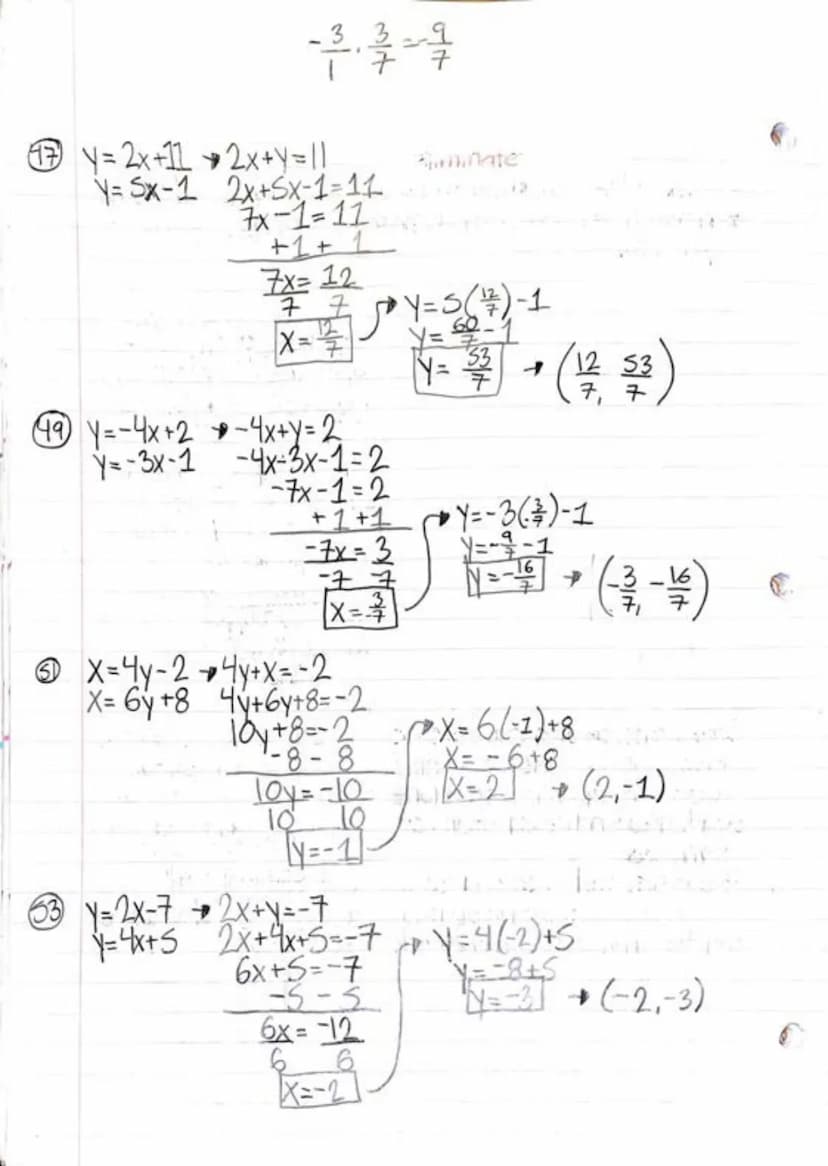 -3/1 · 3/7 = -9/7
47 y=2x+11 → 2x+y=11
y=5x-1 2x+5x-1=11
7x-1=11
+1 + 1
7x/7 = 12/7
x=12/7 → y=5(12/7)-1
y=60/7-1
y=53/7 → (12/7, 53/7)
49 y=-4x+2 → -4x+y=2
y=-3x-1 -4x-3x-1=2
-7x-1=2
+1 +1
-7x/-7 = 3/-7
x=-3/7 → y=-3(3/7)-1
y=-9/7-1
y=-16/7 → (-3/7, -16/7)
51 x=4y-2 → 4y+x=-2
x=6y+8 4y+6y+8=-2
10y+8=-2
-8 - 8
10y/10 = -10/10
y=-1 → x=6(-1)+8
x=-6+8
x=2 → (2,-1)
53 y=2x-7 → 2x+y=-7
y=4x+5 2x+4x+5=-7
6x+5=-7
-5 - 5
6x/6 = -12/6
x=-2 → y=4(-2)+5
y=-8+5
y=-3 → (-2,-3)